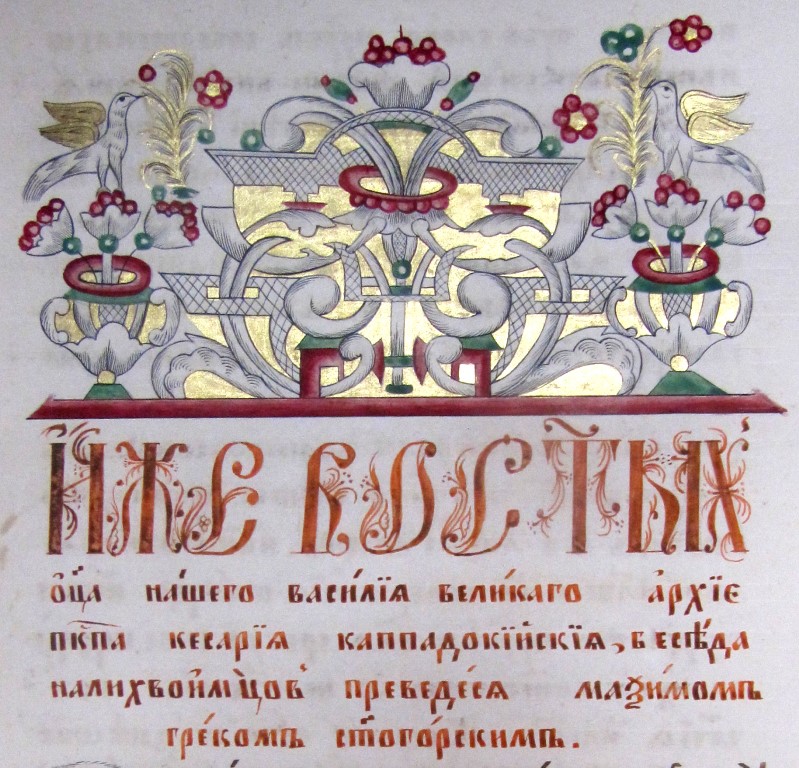 И҆́ЖЕ ВО СТ҃ЫХЪ
ѻ҆ц҃а на́шего васи́лїѧ вели́каго а҆рхїє
пк҃па кесарі́ѧ каппадокїи҆́скїѧ, бесѣ́да
на лихвои҆́мцовъ преведе́сѧ маѯи́момъ
гре́комъ ст҃ого́рскимъ.